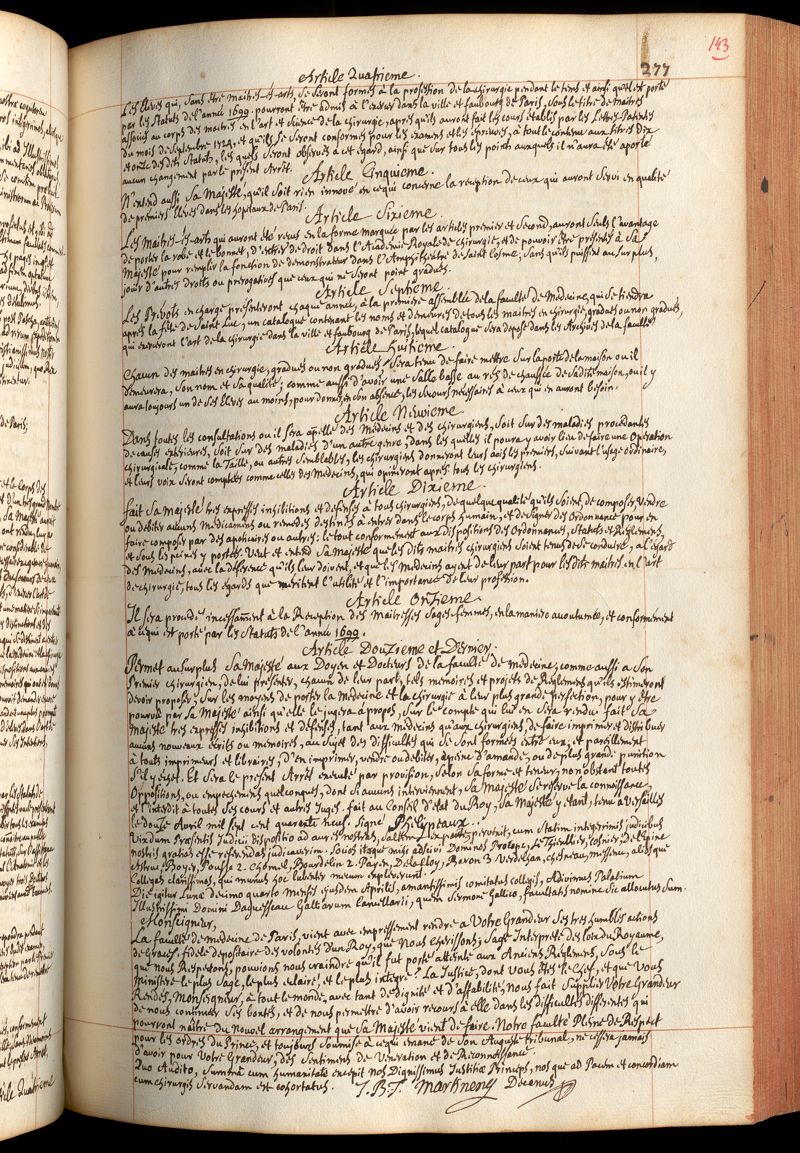 143
277
Article Quatrieme.
Les Eleves qui, sans être maitres-és-arts, se seront formés à la profession de la chirurgie pendant le tems et ainsi qu'il est porté
par les Statuts de l'année 1699. pourront être admis à l'exercer dans la ville et faubourg de Paris, sous le titre de maitres
associés au corps des maitres en l'art et science de la chirurgie, après qu'ils auront fait les cours établis par les Lettres-Patentes
du mois de Septembre 1724, et qu'ils se seront conformés pour les examens et les épreuves, à tout le contenu aux titres Dix
et onze des dits Statuts, les quels seront observés à cet égard, ainsi que sur tous les points auxquels il n'aura été aporté
aucun changement par le présent Arrêt.
Article Cinquieme.
N'entend aussi Sa Majesté, qu'il soit rien innové en ce qui concerne la réception de ceux qui auront servi en qualité
de premiers Eleves dans les hopitaux de Paris.
Article Sixieme.
Les Maitres-és-arts qui auront été reçus en la forme marquée par les articles premier et Second, auront seuls l'avantage
de porter la robe et le bonnet, d'entrer de droit dans l'Académie Royale de chirurgie, et de pouvoir être présentés à Sa
Majesté pour remplir la fonction de demonstrateur dans l'Amphithéatre de Saint Cosme; sans qu'ils puissent au surplus,
jouir d'autres droits ou prérogatives que ceux qui ne seront point gradués.
Article Septieme.
Les Prévots en charge présenteront chaque année, à la première assemblée de la faculté de Médecine, qui se tiendra
après la fête de Saint Luc, un catalogue contenant les noms et demeures de tous les maitres en chirurgie, gradués ou non gradués,
qui exerceront l'art de la chirurgie dans la ville et faubourg de Paris, lequel catalogue sera déposé dans les Archives de la faculté
Article Huitieme.
Chacun des maitres en chirurgie, gradués ou non gradués, sera tenu de faire mettre sur la porte de la maison ou il
demeurera, son nom et sa qualité; comme aussi d'avoir une salle basse au rés de chaussée de sa dite maison, ou il y
aura toujours un de ses Eleves au moins, pour donner, en son absence, les secours nécessaires à ceux qui en auront besoin.
Article Neuvieme
Dans toutes les consultations ou il sera apellé des Médecins et des chirurgiens, soit sur des maladies procedantes
de causes exterieures, soit sur des maladies d'un autre genre, dans les quelles il poura y avoir lieu de faire une Opération
chirurgicale, comme la Taille, ou autres semblables, les chirurgiens donneront leurs avis les premiers, suivant l'usage ordinaire,
et leurs voix seront comptées comme celles des Medecins, qui opineront après tous les chirurgiens.
Article Dixieme.
fait Sa Majesté tres expresses inhibitions et défenses à tous chirurgiens, de quelque qualité qu'ils soient, de composer, vendre
ou débiter aucuns médicamens ou remedes destinés à entrer dans le corps humain, et de signer des Ordonnances pour en
faire composer par des apoticaires ou autres: le tout conformement aux dispositions des Ordonnances, Statuts et Reglemens,
et sous les peines y portées. Veut et entend Sa Majesté que les dits maitres chirurgiens soient tenus de se conduire, à l'égard
des Medecins, avec la déference qu'ils leur doivent, et que les Medecins ayent de leur part pour les dits maitres en l'art
de chirurgie, tous les égards que meritent l'utilité et l'importance de leur profession.
Article Onzieme.
Il sera procedé incessament à la Reception des Maitresses Sages-femmes, en la maniere accoutumée, et conformement
à ce qui est porté par les Statuts de l'année 1699.
Article Douzieme et Dernier.
Permet au surplus Sa Majesté aux Doyen et Docteurs de la faculté de medecine; comme aussi à son
Premier chirurgien, de lui présenter, chacun de leur part, tels memoires et projets de Reglement qu'ils estimeront
devoir proposer, sur les moyens de porter la Medecine et la chirurgie à leur plus grande perfection, pour y être
pourvu par Sa Majesté ainsi qu'elle le jugera à propos, sur le compte qui lui en sera rendu. fait Sa
Majesté tres expresses inhibitions et défenses, tant aux Medecins qu'aux chirurgiens, de faire imprimer et distribuer
aucuns nouveaux écrits ou mémoires, au sujet des difficultés qui se sont formées entre eux; et pareillement
à touts imprimeurs et libraires, d'en imprimer, vendre ou débiter, à peine d'amande, ou de plus grande punition
s'il y échet. Et sera le présent Arrêt executé par provision, selon sa forme et teneur, nonobstant toutes
Oppositions, ou empechemens quelconques, dont si aucuns interviennent, Sa Majesté se réserve la connaissance,
et l'interdit à toutes ses cours et autres Juges. fait au Conseil d'Etat du Roy, Sa Majesté y étant, tenu à Versailles
le douze Avril mil sept cent quarante neuf. Signé Phelypeaux.
Vixdum Præsentis Judicii dispositio ad aures nostras, saltem ex parte, pervenit, cum statim integerrimis judicibus
nostris gratias esse referendas judicaverim. Socios itaque mihi adscivi Dominos Profope, Le Thieullier, Cosnier, De L'Epine
Astruc, Boyer, Pousse 2. Chomel, Bourdelin 2. Payen, De La Cloy, Baron 3. Verdelhan, Chesneau, Misseeu, aliosque
Collegas clarissimos, qui munus hoc lubenter mecum expleverunt.
Die igitur Lunæ decimo quarto mensis ejusdem Aprilis, amantissimis comitatus collegis, Adivimus Palatium
Illustrissimi Domini Daguesseau Galliarum Cancellarii, quem sermone Gallico, facultatis nomine sic allocutus sum.
Monseigneur,
La faculté de medecine de Paris, vient avec empressement rendre a Votre Grandeur ses tres humbles actions
de Graces. fidele depositaire des volontés d'un Roy, que Nous cherissons; sage Interprete des loix du Royaume,
que nous Respectons, pouvions nous craindre qu'il fut porté atteinte aux Anciens Reglemens, sous le
Ministere le plus sage, le plus éclairé, et le plus intégre? La Justice, dont Vous êtes le Chef, et que Vous
Rendés, Monseigneur, à tout le monde, avec tant de dignité et d'affabilité, nous fait supplier Votre Grandeur
de nous continuer ses bontés, et de nous permettre d'avoir recours à elle dans les difficultés differentes qui
pourront naître du nouvel arrangement que Sa Majesté vient de faire. Notre faculté Pleine de Respect
pour les ordres du Prince, et toujours soumise à ce qui emane de son Auguste tribunal, ne cessera jamais
d'avoir pour Votre Grandeur, des sentimens de Veneration et de Reconnoissance.
Quo Audito, summâ cum humanitate excepit nos Dignissimus Justitiæ Princeps, nosque ad Pacem et concordiam
cum chirurgis servandam est cohortatus.
J. B. T. Martinenq Decanus